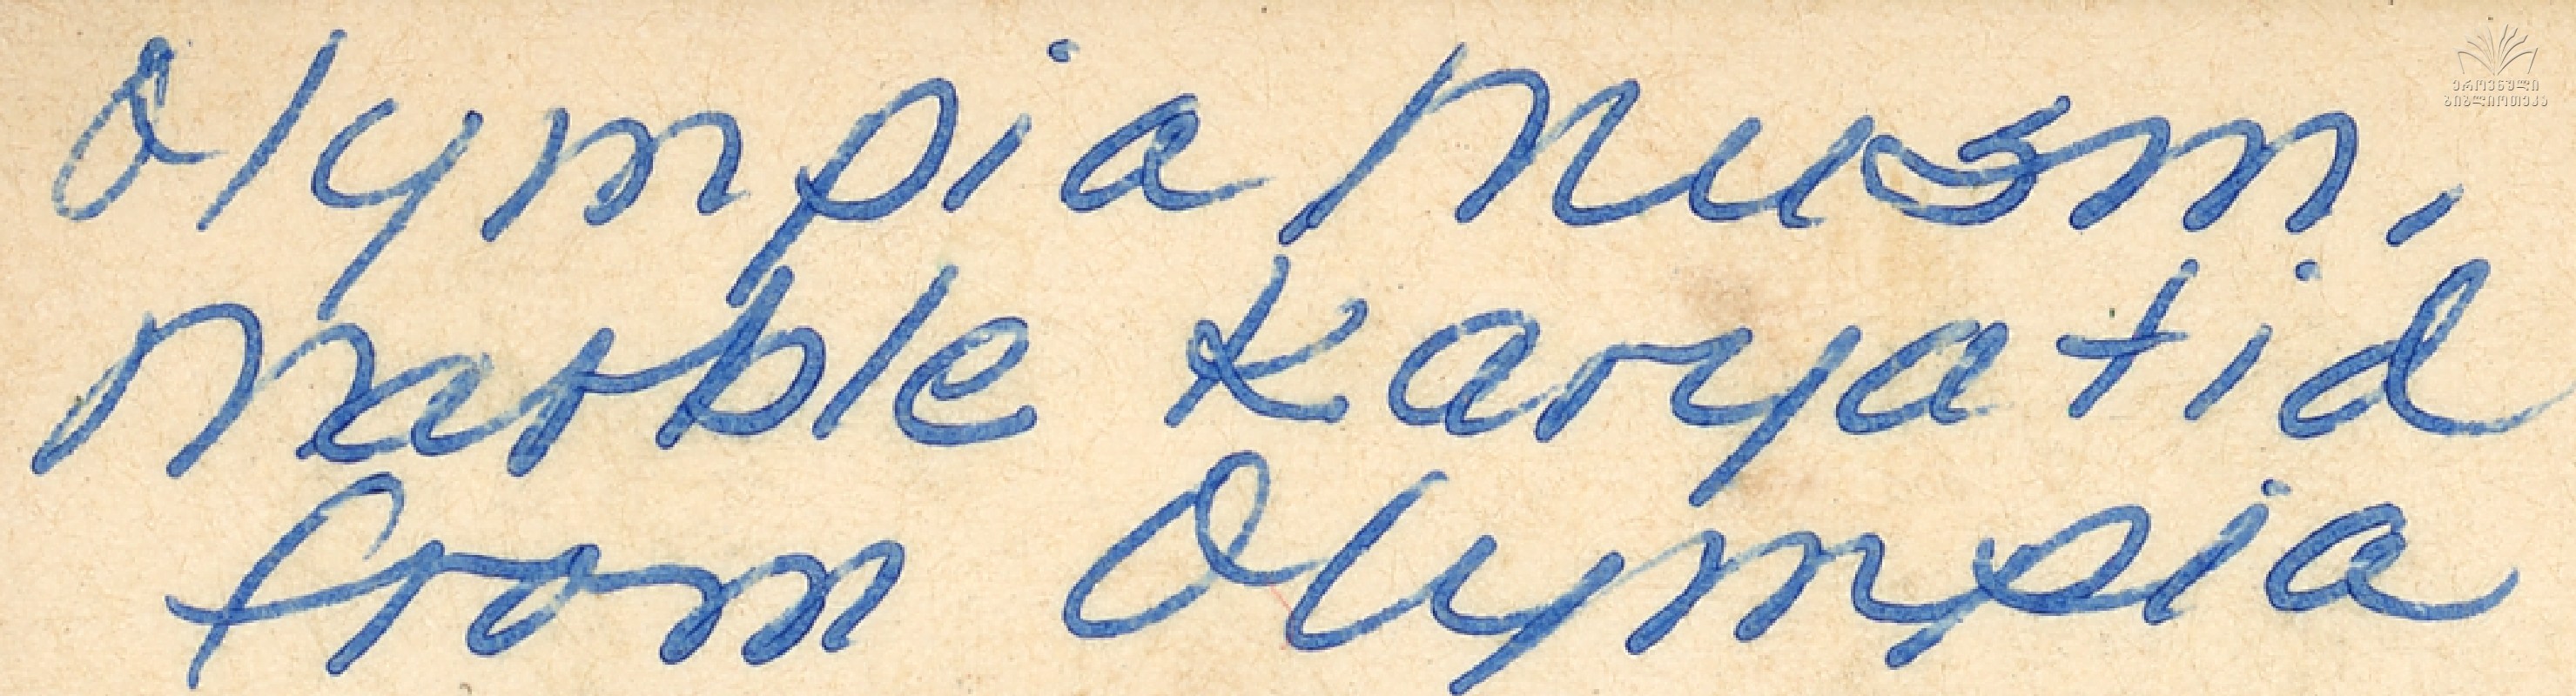 Olympia Musm,
Marble Karyatid
from Olympia
ეროვნული
ბიბლიოთეკა